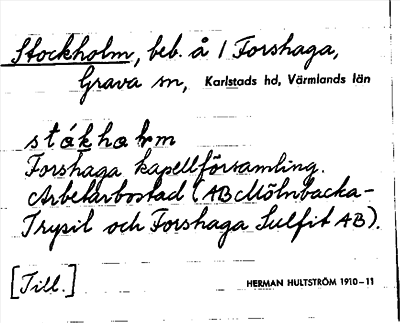 Stockholm, beb. å 1 Forshaga,
Grava sn, Karlstads hd, Värmlands län
stákhɑlm
Forshaga kapellförsamling.
Arbetarbostad (AB Mölnbacka-
Trysil och Forshaga Sulfit AB).
[Till.]
HERMAN HULTSTRÖM 1910-11